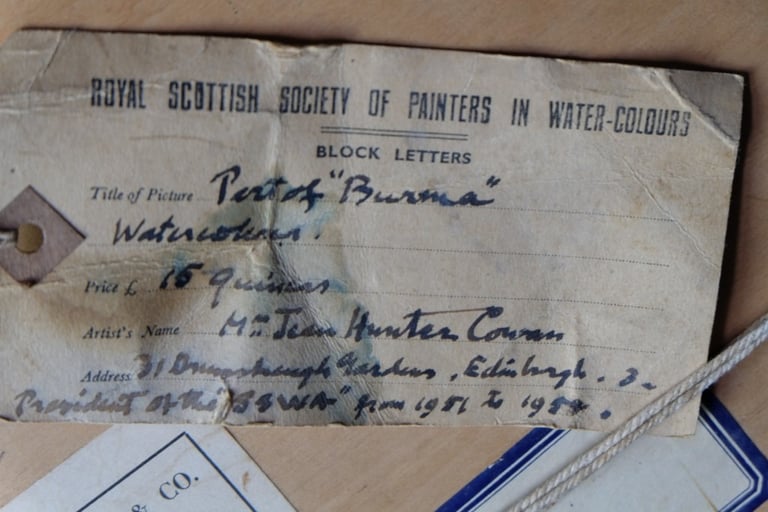 ROYAL SCOTTISH SOCIETY OF PAINTERS IN WATER-COLOURS
BLOCK LETTERS
Title of Picture Port of "Burma"
Watercolour.
Price £ 15 guineas
Artist's Name Mrs Jean Hunter Cowan
Address 31 Drumsheugh Gardens, Edinburgh. 3.
President of the "SSWA" from 1951 to
& CO.